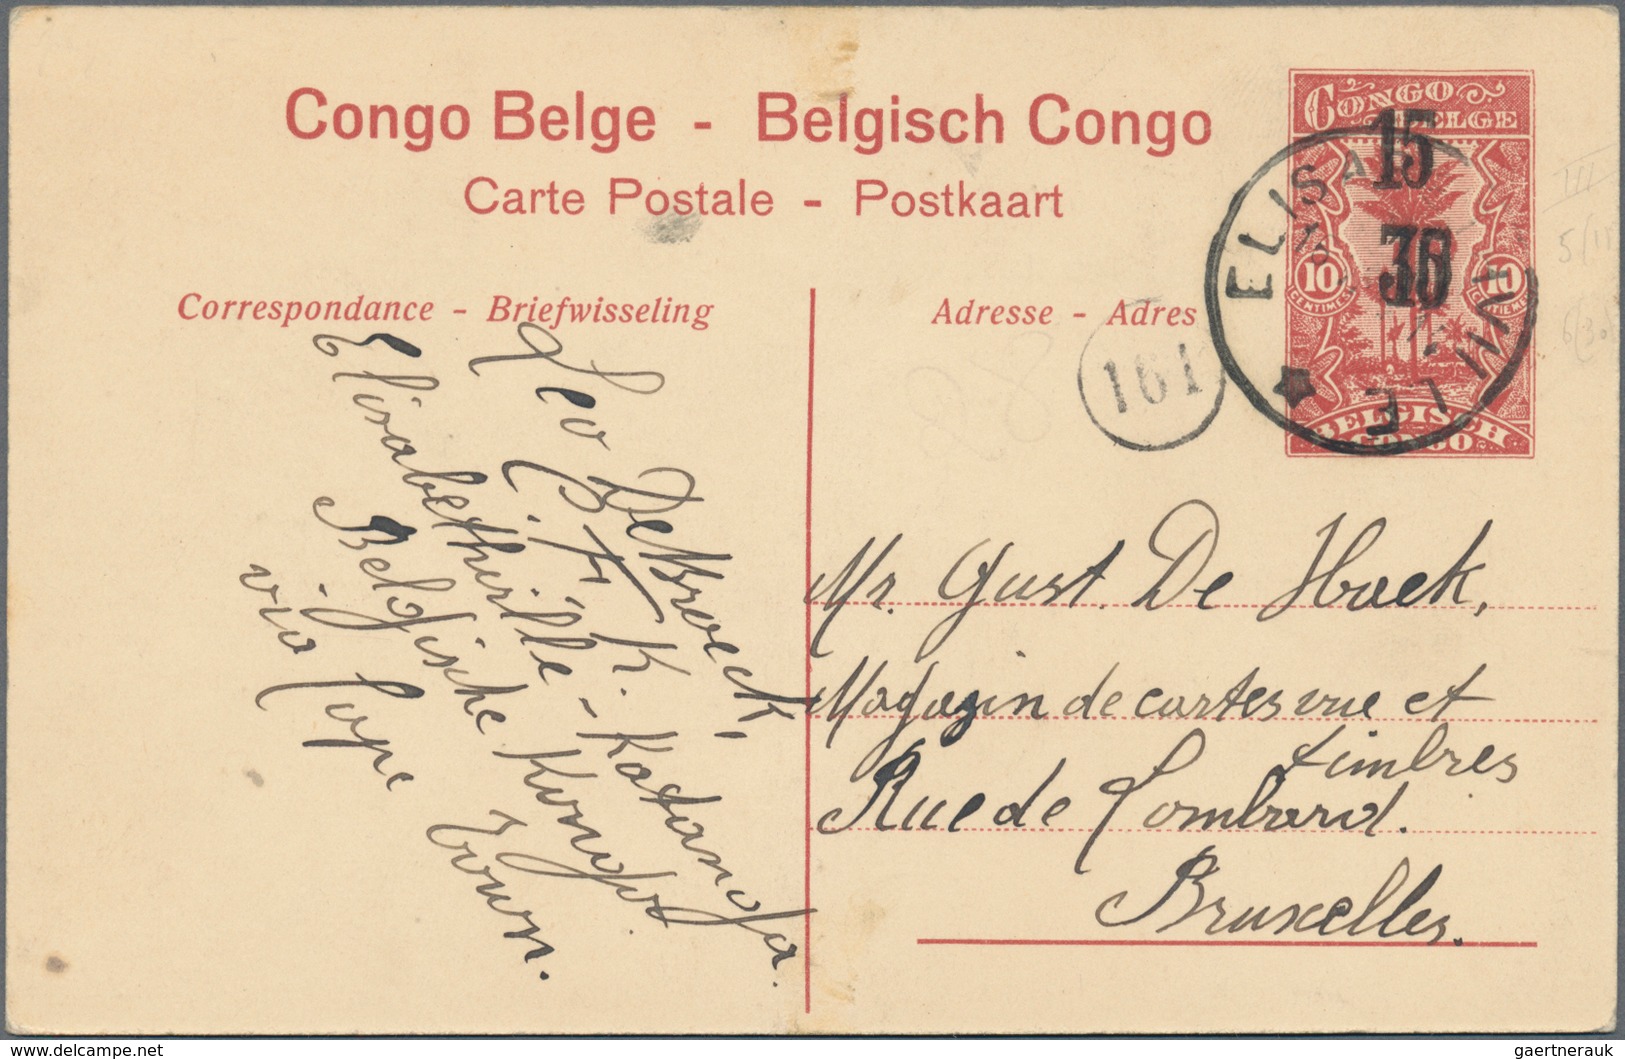 Congo Belge - Belgisch Congo
Carte Postale - Postkaart
Correspondance - Briefwisseling
Adresse - Adres
CONGO
BELGE
15
30
10
10
CENTIMES
BELGISCH
CONGO
ELISA
VILLE
161
III
Leo DeKroeck,
B.T.K. Katanga.
Elisabethville -
Belgische Kongo.
via Cape Town.
Mr. Gust. De Hoek,
Magazin de cartes vue et
timbres
Rue de Lombard.
Bruxelles.
Delcampe.net
gaertnerauk